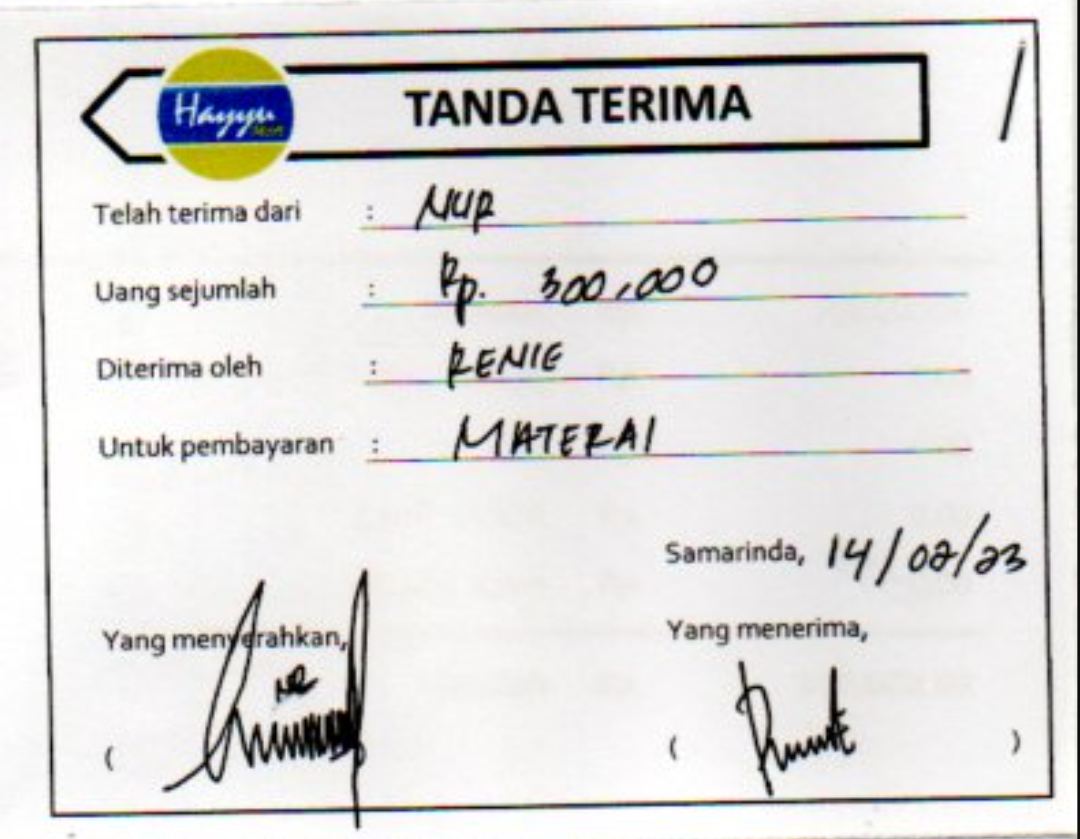 Hayyu Mart
TANDA TERIMA
/
Telah terima dari : NUR
Uang sejumlah : Rp. 300,000
Diterima oleh : RENIE
Untuk pembayaran : MATERAI
Samarinda, 14/02/23
Yang menyerahkan, Yang menerima,
( ( )